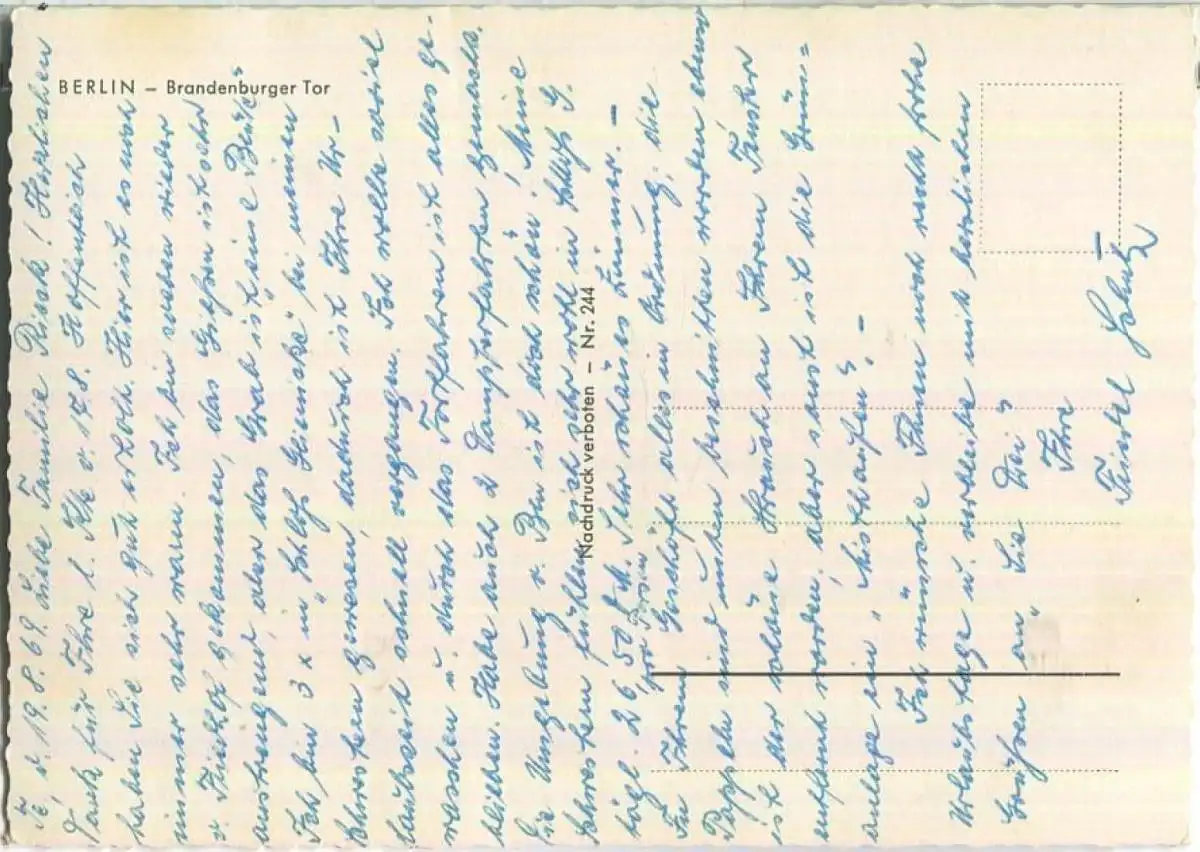 BERLIN – Brandenburger Tor
Nachdruck verboten – Nr. 244
d. 19.8.69. Liebe Familie ! Herzlichen
Dank für Ihre l. Kte v. 14.8. Hoffentlich
haben Sie sich gut erholt. Hier ist es noch
immer sehr warm. Ich bin soeben wieder
v. Friedhof gekommen, das Gießen ist sehr
anstrengend, aber das Grab ist "eine Blüte"
Ich bin 3 x in "Schloß Glienicke" bei meinen
Schwestern gewesen, dadurch ist Ihre Ur-
laubszeit schnell vergangen. Ich wollte soviel
waschen u. durch das Fortfahren ist alles ge-
blieben. Habe auch 2 Dampferfahrten gemacht.
Die Umgebung v. Bln ist doch schön! Meine
Schwestern fühlen sich sehr wohl in Schloß G.
tägl. 26,50 M. Sehr schönes Zimmer. –
pro Person
In Ihrem Geschäft alles in Ordnung, die
Pappeln sind unten beschnitten worden ebenso
ist der schöne Strauch an Ihrem Fenster
entfernt worden, aber sonst ist die Grün-
anlage ein –
Ich wünsche Ihnen noch frohe
Urlaubstage u. verbleibe mit herzlichen
Grüßen an Sie
Ihre